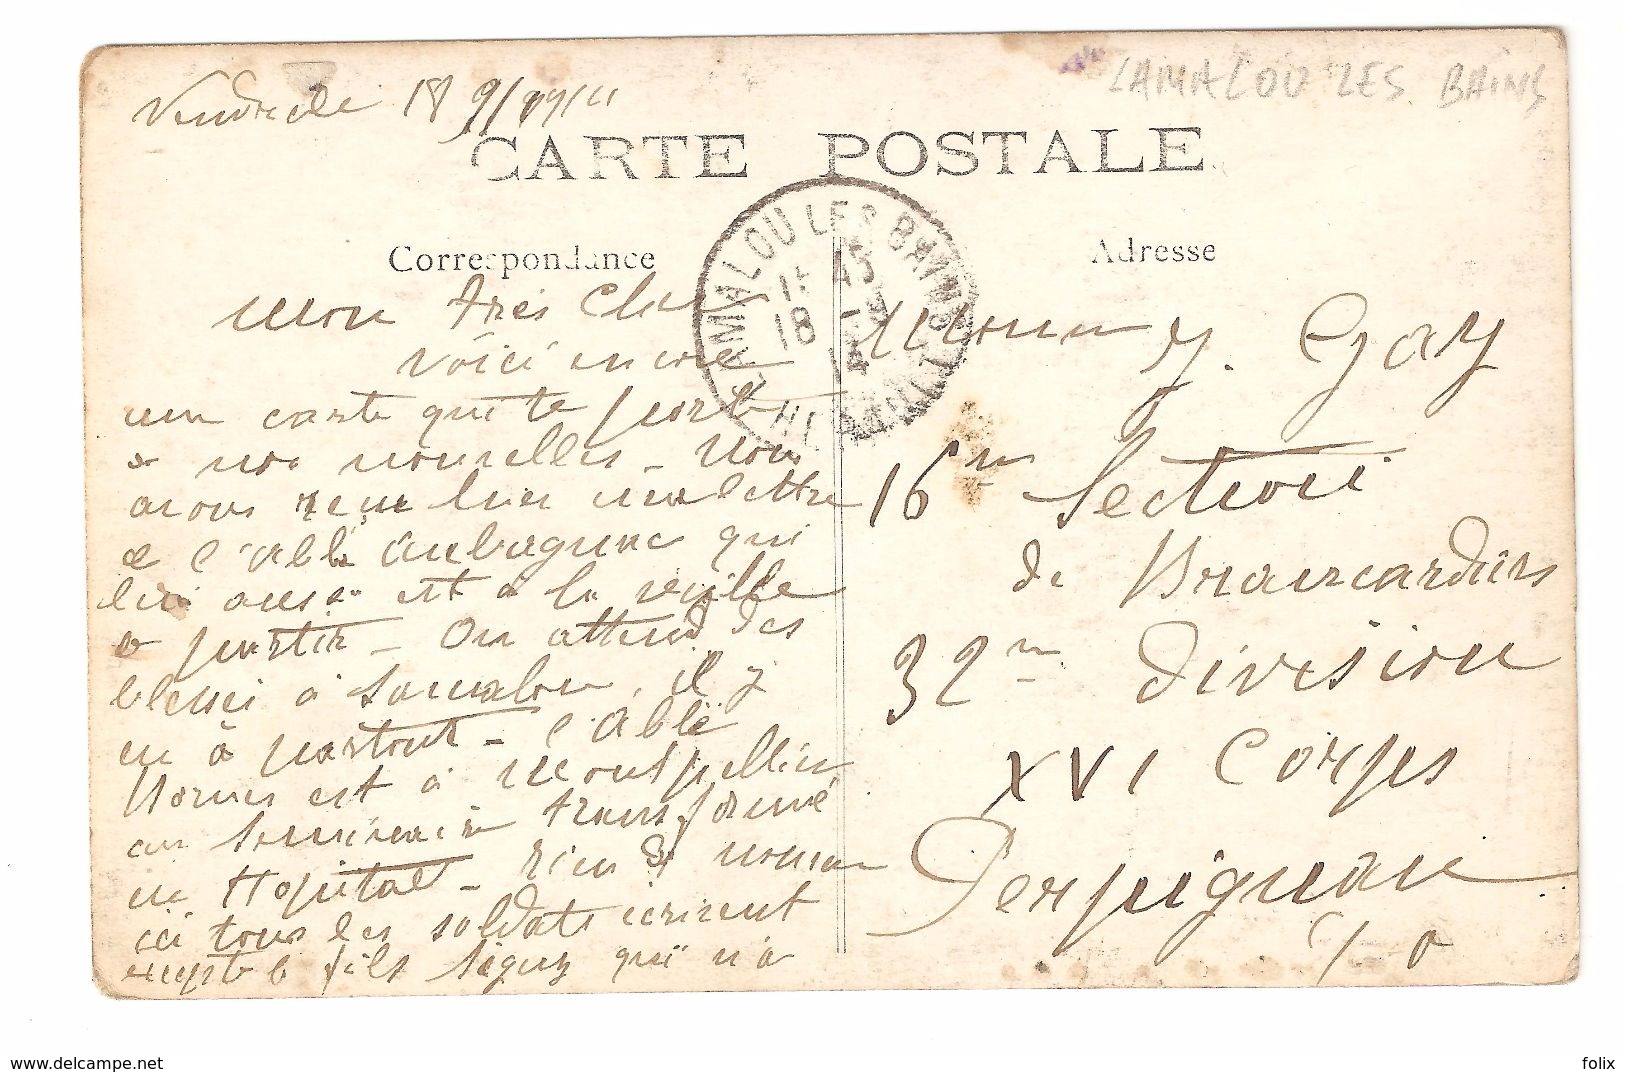 Vendredi 18 9/1914
LAMALOU LES BAINS
CARTE POSTALE
Correspondance
Adresse
LAMALOU LES BAINS
15 45
18 -9
14
HERAULT
Mon très Cher
Voici encore
une carte qui te porte
de nos nouvelles - Nous
avons reçu hier une lettre
de l'abbé Aubagnac qui
lui aussi est à la veille
de partir - On attend des
blessés à Lamalou, il y
en a partout - L'abbé
est à Montpellier
au Séminaire transformé
en Hopital - rien de nouveau
ici tous les soldats écrivent
excepté le fils qui n'a
Y. Gay
16me Section
de Brancardiers
32me Division
XVI Corps
Perpignan
P O
www.delcampe.net
folix